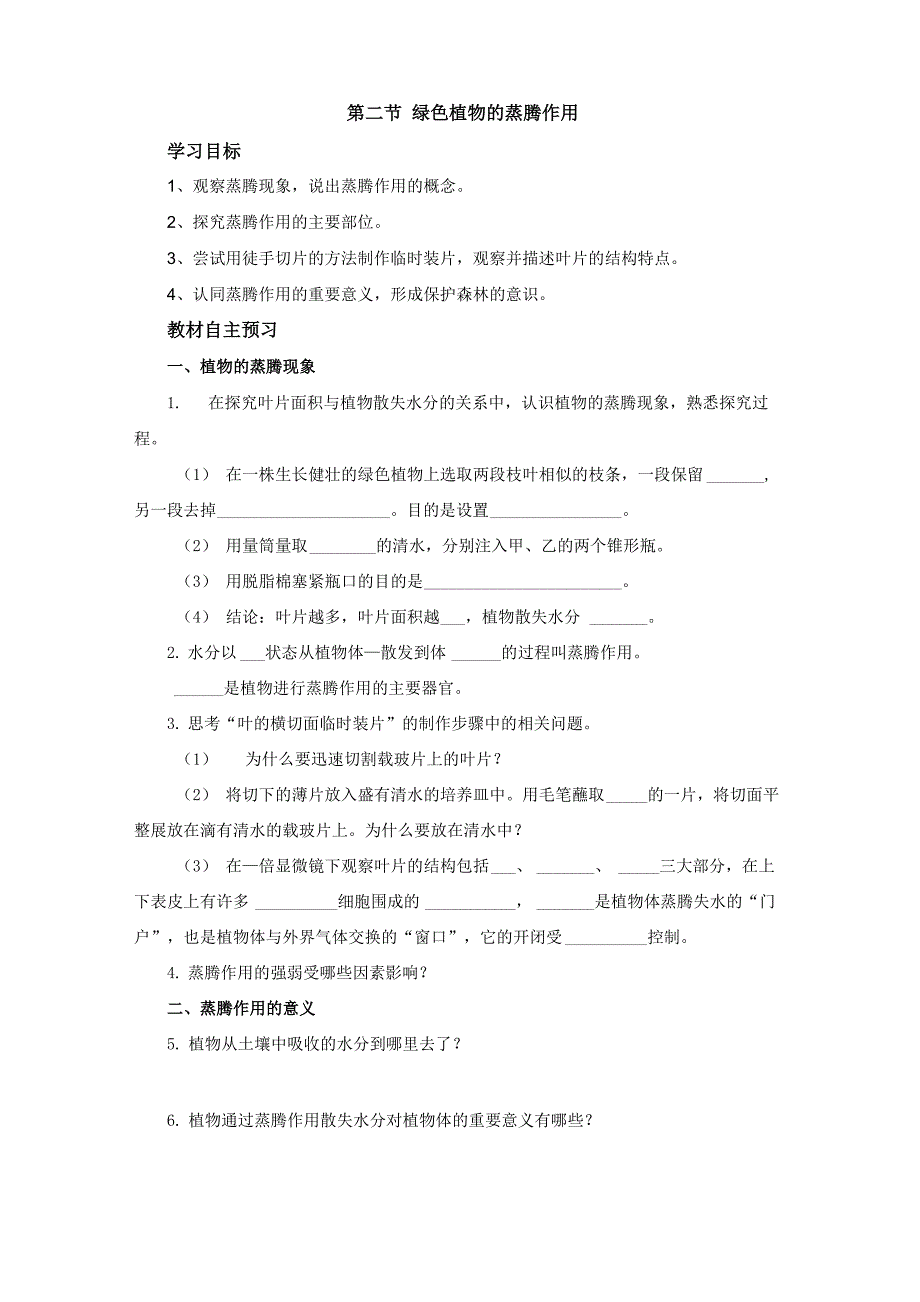 第二节 绿色植物的蒸腾作用
学习目标
1、观察蒸腾现象，说出蒸腾作用的概念。
2、探究蒸腾作用的主要部位。
3、尝试用徒手切片的方法制作临时装片，观察并描述叶片的结构特点。
4、认同蒸腾作用的重要意义，形成保护森林的意识。
教材自主预习
一、植物的蒸腾现象
1. 在探究叶片面积与植物散失水分的关系中，认识植物的蒸腾现象，熟悉探究过
程。
（1） 在一株生长健壮的绿色植物上选取两段枝叶相似的枝条，一段保留_______,
另一段去掉_____________________。目的是设置________________。
（2） 用量筒量取________的清水，分别注入甲、乙的两个锥形瓶。
（3） 用脱脂棉塞紧瓶口的目的是________________________。
（4） 结论：叶片越多，叶片面积越___，植物散失水分 _______。
2. 水分以___状态从植物体—散发到体 ______的过程叫蒸腾作用。
______是植物进行蒸腾作用的主要器官。
3. 思考“叶的横切面临时装片”的制作步骤中的相关问题。
（1） 为什么要迅速切割载玻片上的叶片？
（2） 将切下的薄片放入盛有清水的培养皿中。用毛笔蘸取_____的一片，将切面平
整展放在滴有清水的载玻片上。为什么要放在清水中？
（3） 在—倍显微镜下观察叶片的结构包括___、 _______、 _____三大部分，在上
下表皮上有许多 __________细胞围成的 ___________， _______是植物体蒸腾失水的“门
户”，也是植物体与外界气体交换的“窗口”，它的开闭受__________控制。
4. 蒸腾作用的强弱受哪些因素影响？
二、蒸腾作用的意义
5. 植物从土壤中吸收的水分到哪里去了？
6. 植物通过蒸腾作用散失水分对植物体的重要意义有哪些？